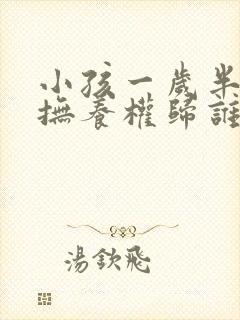 小孩一歲半
撫養權歸誰
湯欽飛